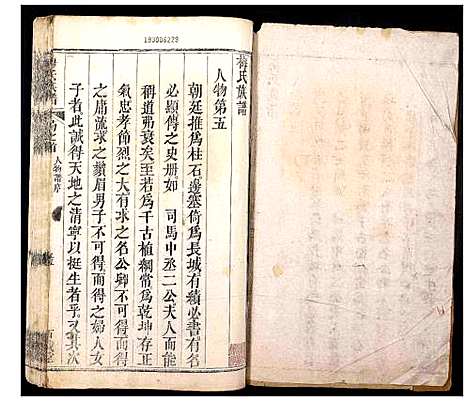 190006229
梅氏族譜
人物第五
朝廷推為柱石邊塞倚為長城有績必書有名
必顯傳之史册如　司馬中丞二公夫人而能
稱道弗衰矣至若為千古植綱常為乾坤存正
氣忠孝節烈之大有求之名公卿不可得而得
之庸流求之鬚眉男子不可得而得之婦人女
子者此誠得天地之清寧以挺生者乎又其次
人物譜序